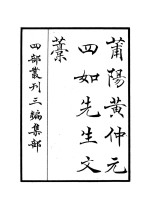 莆陽黃仲元
四如先生文
藁
四部叢刊三編集部